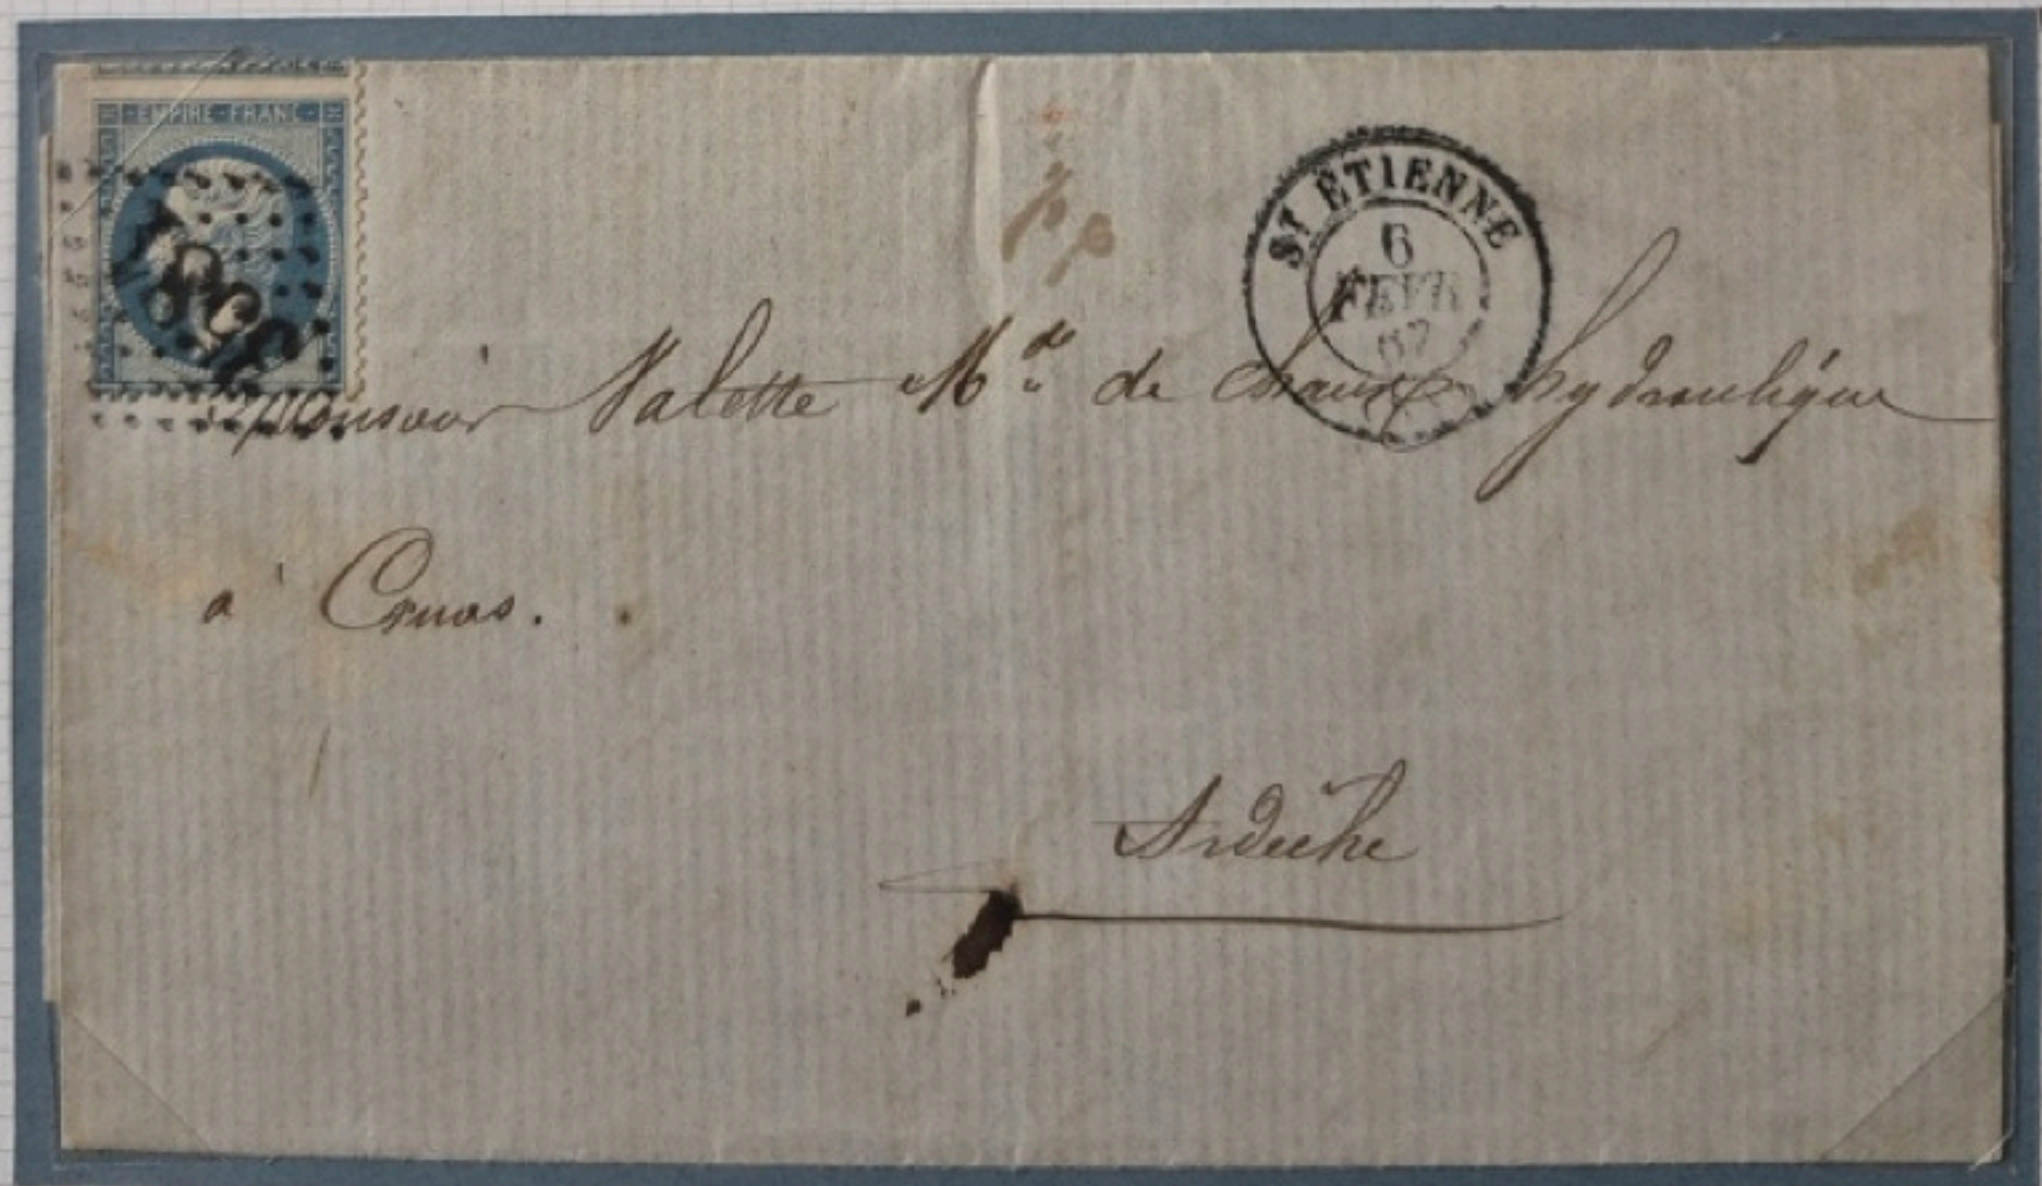 EMPIRE FRANC
3581
ST ETIENNE
6
FEVR
67
Monsieur Valette Md de chaux hydraulique
à Cruas.
Ardèche